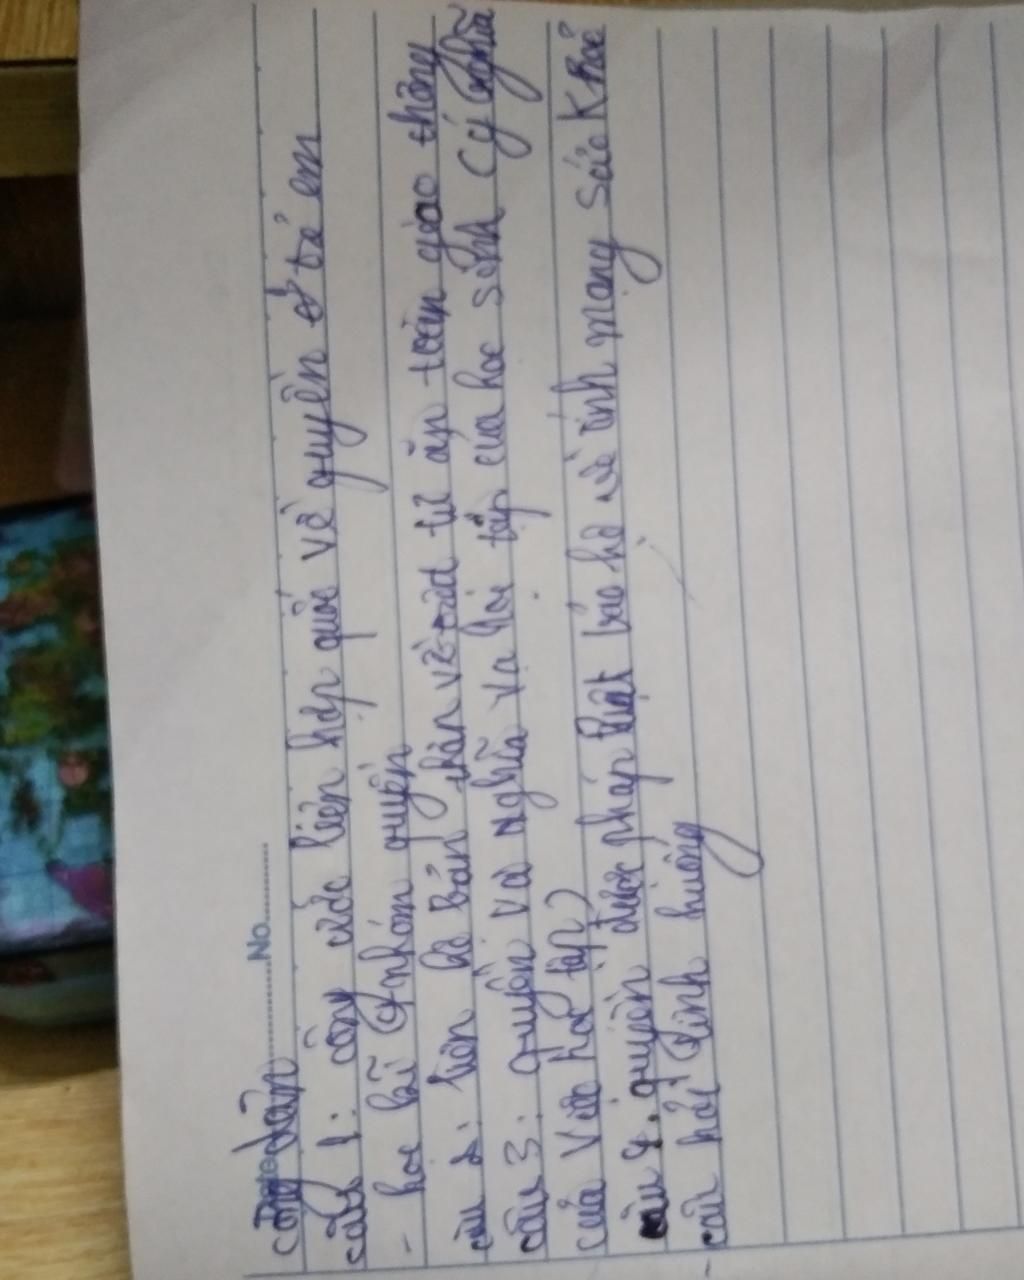 Date No.
công dân
câu 1: công ước liên hợp quốc về quyền trẻ em
- học kĩ 4 nhóm quyền
câu 2: liên hệ bản thân về trật tự an toàn giao thông
câu 3: quyền và nghĩa vụ học tập của học sinh (ý nghĩa
của việc học tập)
câu 4: quyền được pháp luật bảo hộ về tính mạng sức khoẻ
- câu hỏi tình huống